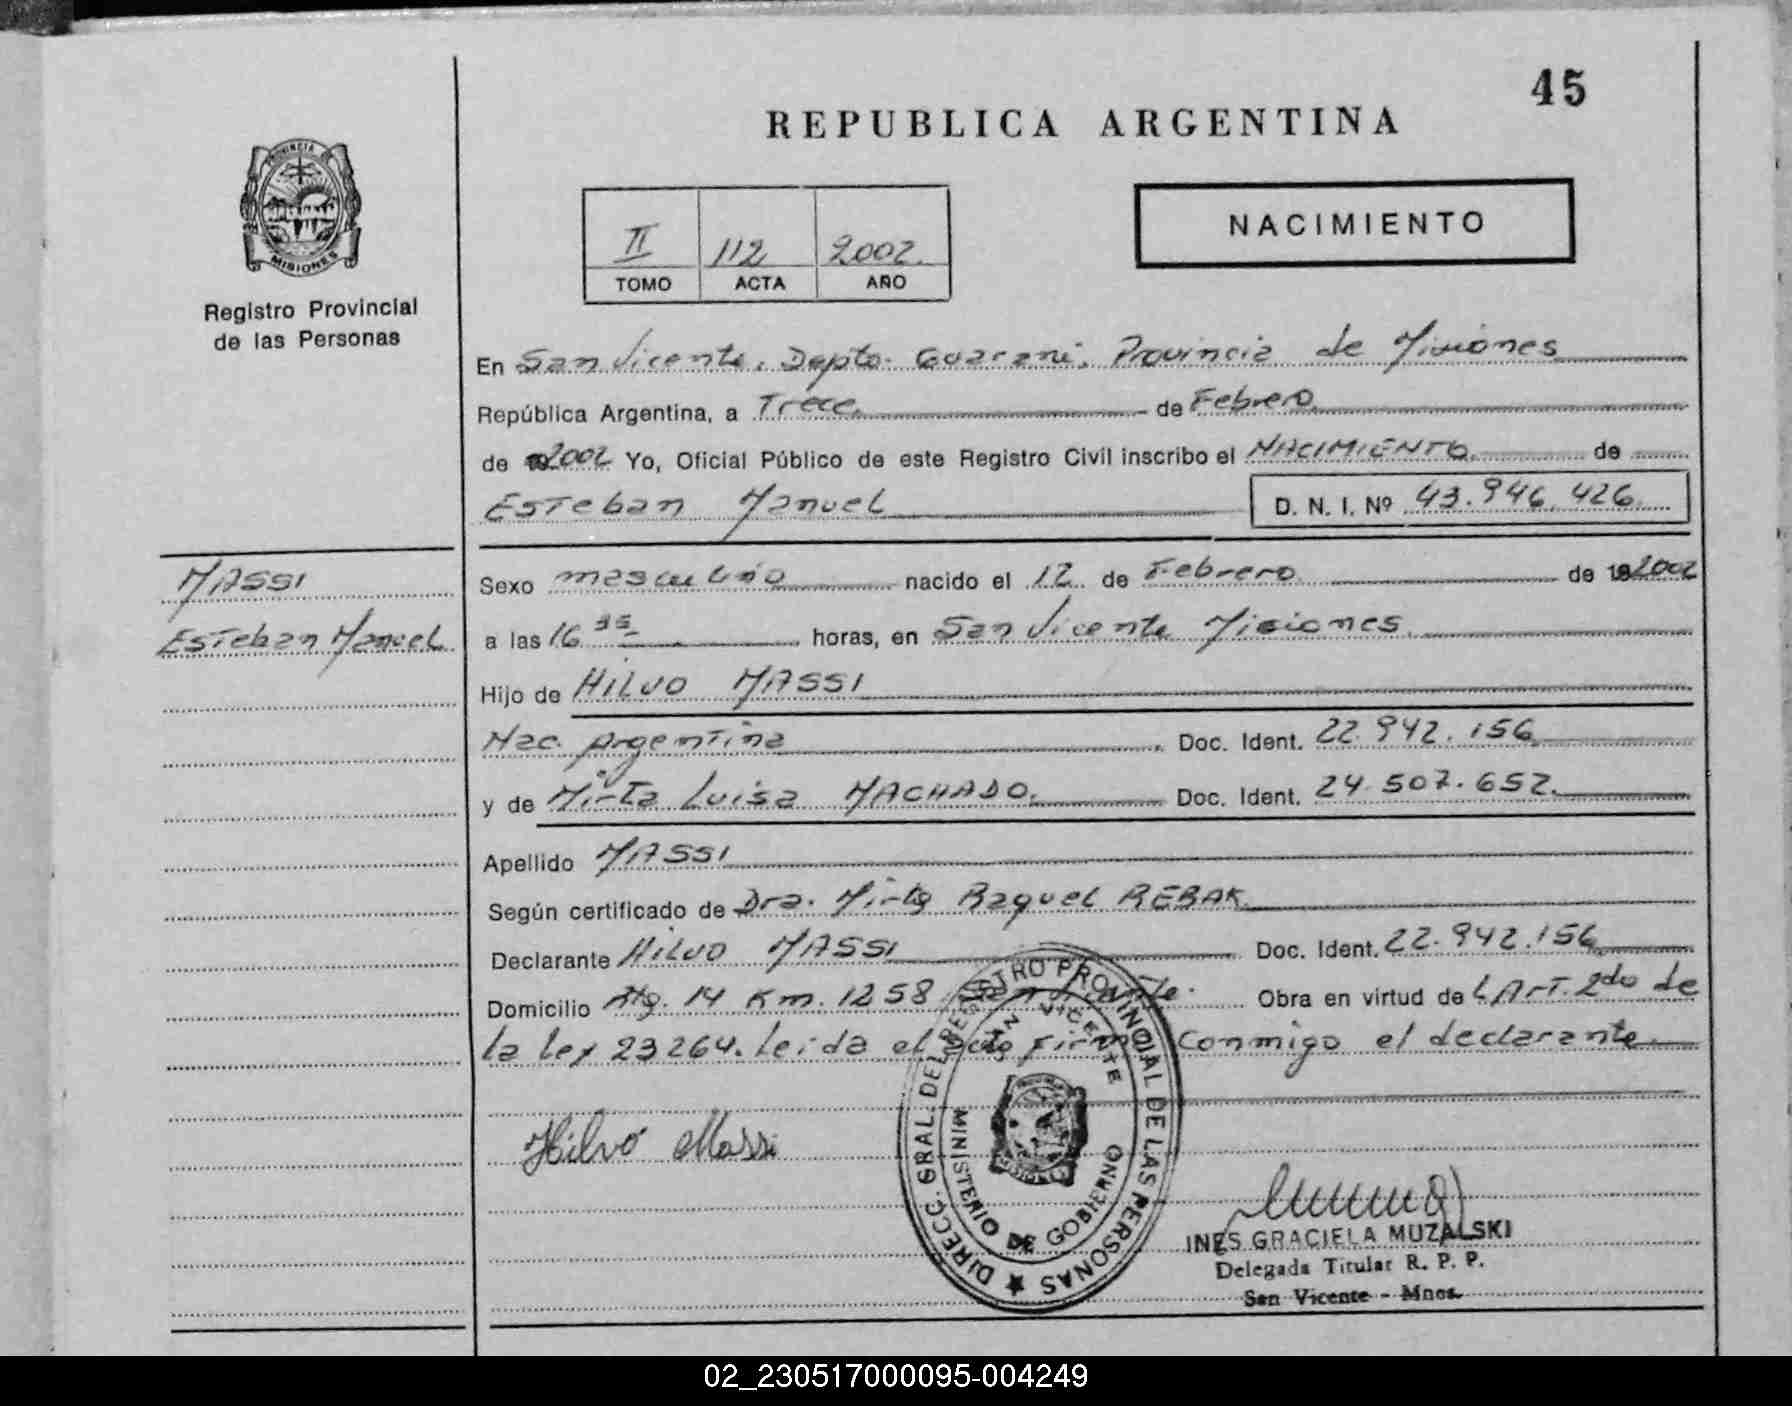 45
REPUBLICA ARGENTINA
PROVINCIA DE
MISIONES
Registro Provincial
de las Personas
II 112 2002.
TOMO ACTA AÑO
NACIMIENTO
En San Vicente, Depto. Guaraní, Provincia de Misiones
República Argentina, a Trece de Febrero
de 2002 Yo, Oficial Público de este Registro Civil inscribo el NACIMIENTO de
Esteban Manuel D. N. I. Nº 43.946.426
MASSI
Esteban Manuel
Sexo masculino nacido el 12 de Febrero de 192002
a las 16 35 horas, en San Vicente Misiones
Hijo de HILVO MASSI
Nac. Argentina Doc. Ident. 22.942.156
y de Mirta Luisa MACHADO. Doc. Ident. 24.507.652.
Apellido MASSI
Según certificado de Dra. Mirta Raquel REBAK
Declarante HILVO MASSI Doc. Ident. 22.942.156
Domicilio Km. 1258 San Vicente. Obra en virtud de L'Art. 2do de
la Ley 23264. Leida el Acta Firma Conmigo el declarante.
Hilvo Massi
DIRECC. GRAL. DEL REGISTRO PROVINCIAL DE LAS PERSONAS
SAN VICENTE
MINISTERIO DE GOBIERNO
INES GRACIELA MUZALSKI
Delegada Titular R. P. P.
San Vicente - Mnes.
02_230517000095-004249